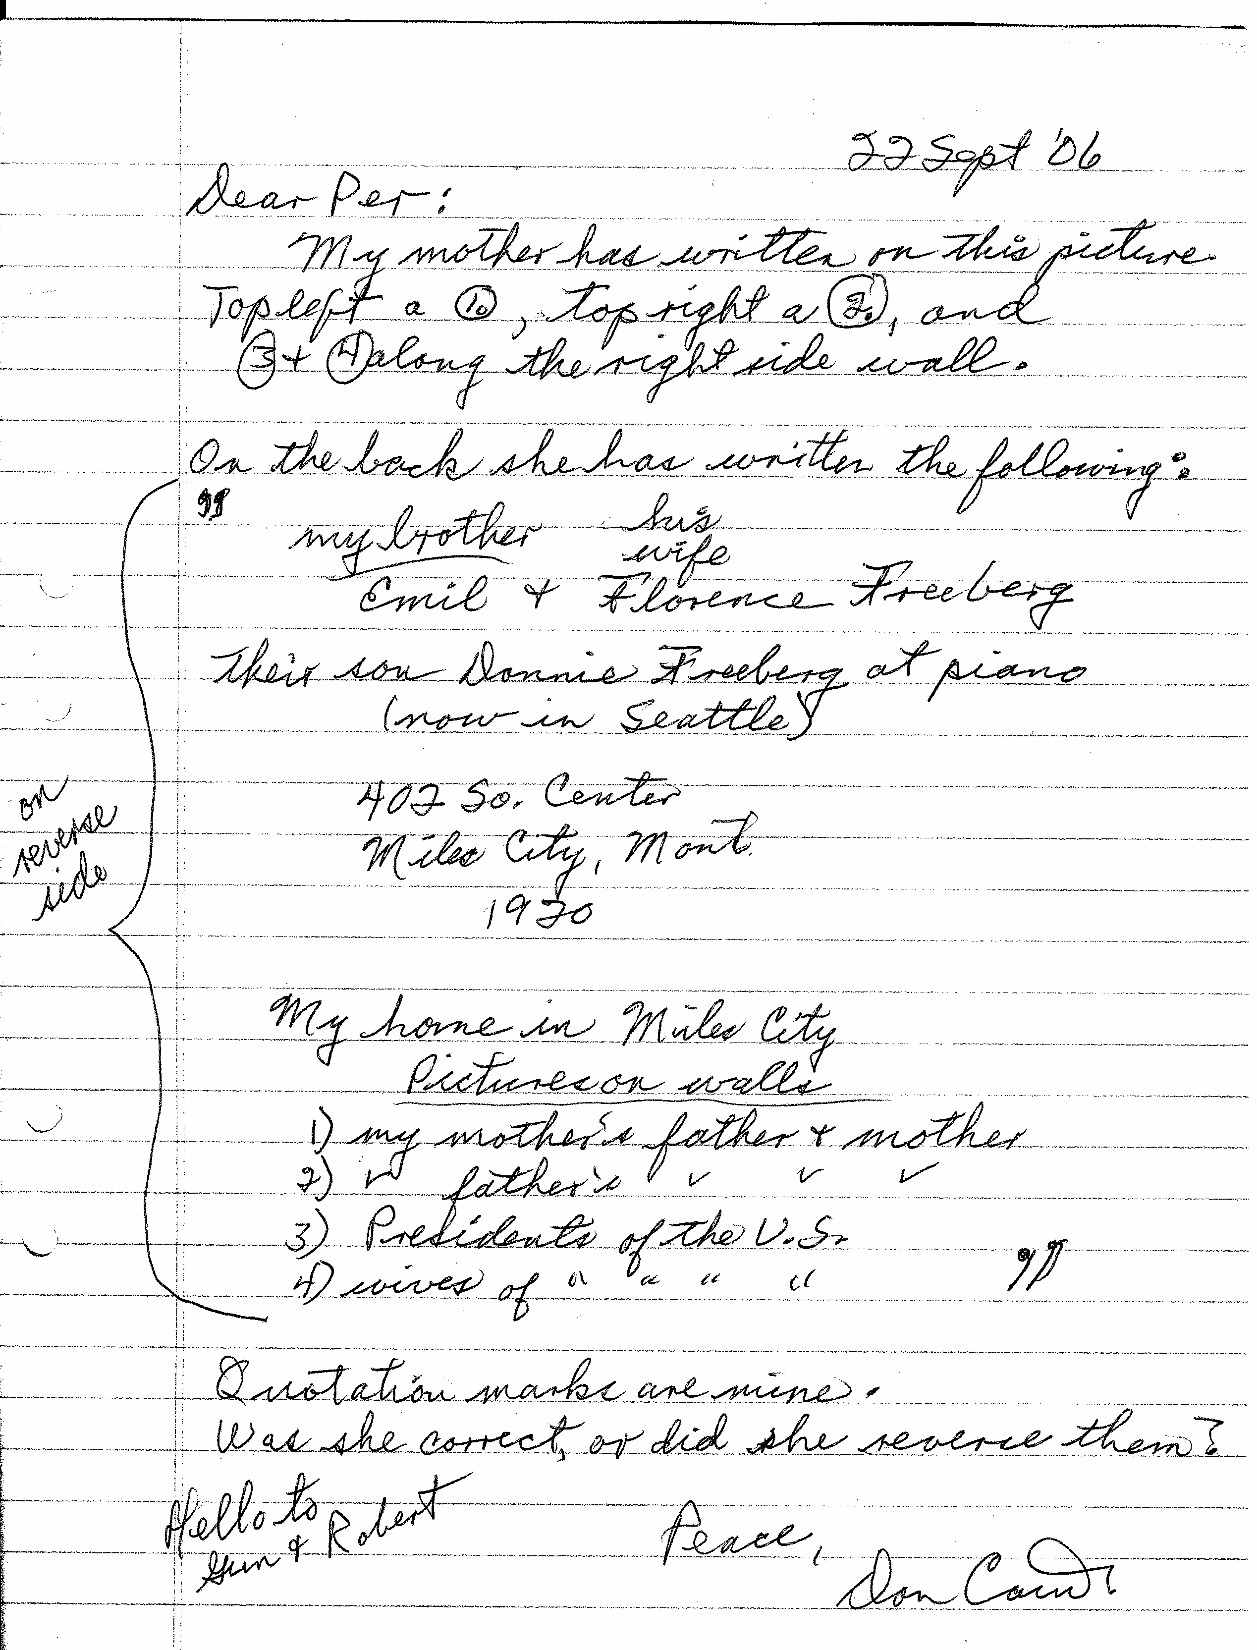 22 Sept '06
Dear Per:
My mother has written on this picture.
Top left a ①, top right a ②, and
③ + ④ along the right side wall.
On the back she has written the following:
"
my brother his
wife
Emil + Florence Freeberg
Their son Donnie Freeberg at piano
(now in Seattle)
402 So. Center
Miles City, Mont.
1920
on
reverse
side
My home in Miles City
Pictures on walls
1) my mother's father + mother
2) ✓ father's ✓ ✓ ✓
3) Presidents of the U.S.
4) wives of " " " "
"
Quotation marks are mine.
Was she correct, or did she reverse them?
Hello to
Gun + Robert
Peace,
Don